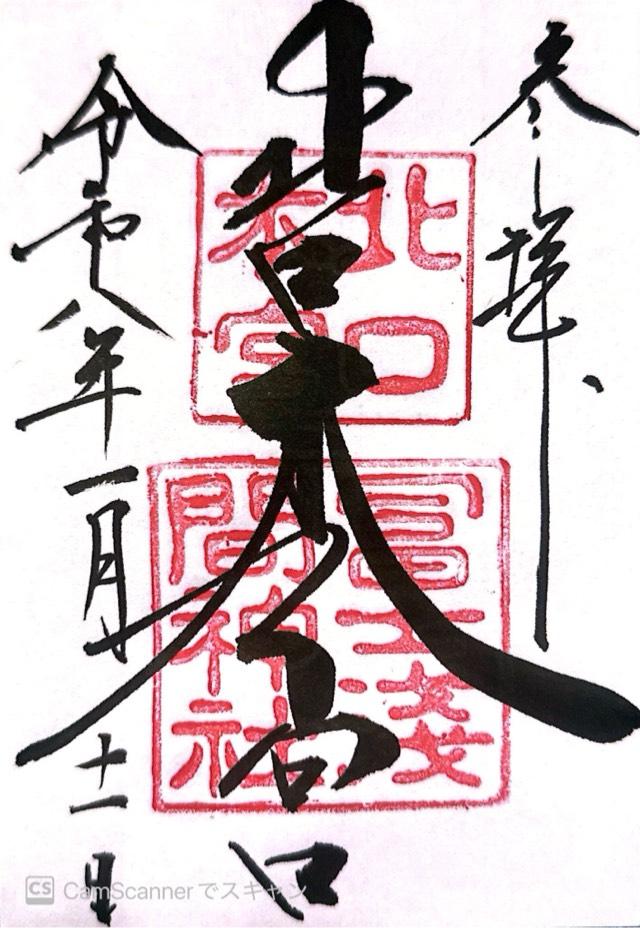 参拝
北口
本宮
冨士淺
間神社
令和八年一月十一日
CS CamScannerでスキャン